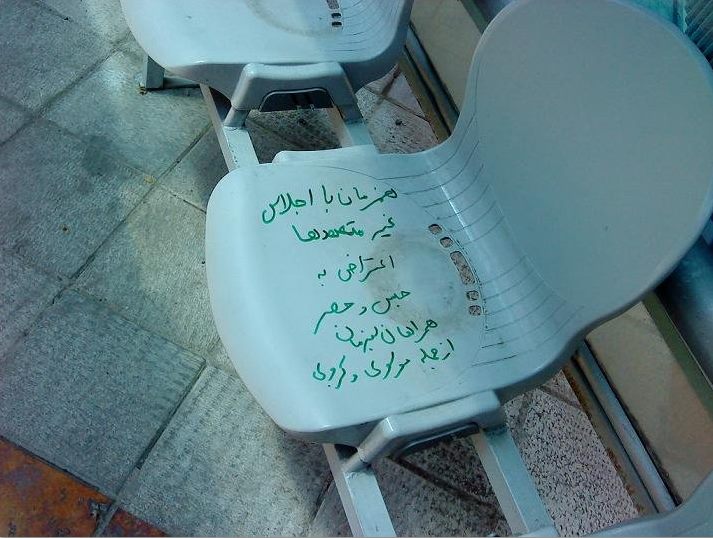 همزمان با اجلاس
غیر متعهدها
اعتراض به
حبس و حصر
همراهان سبزمان
ازجمله موسوی و کروبی